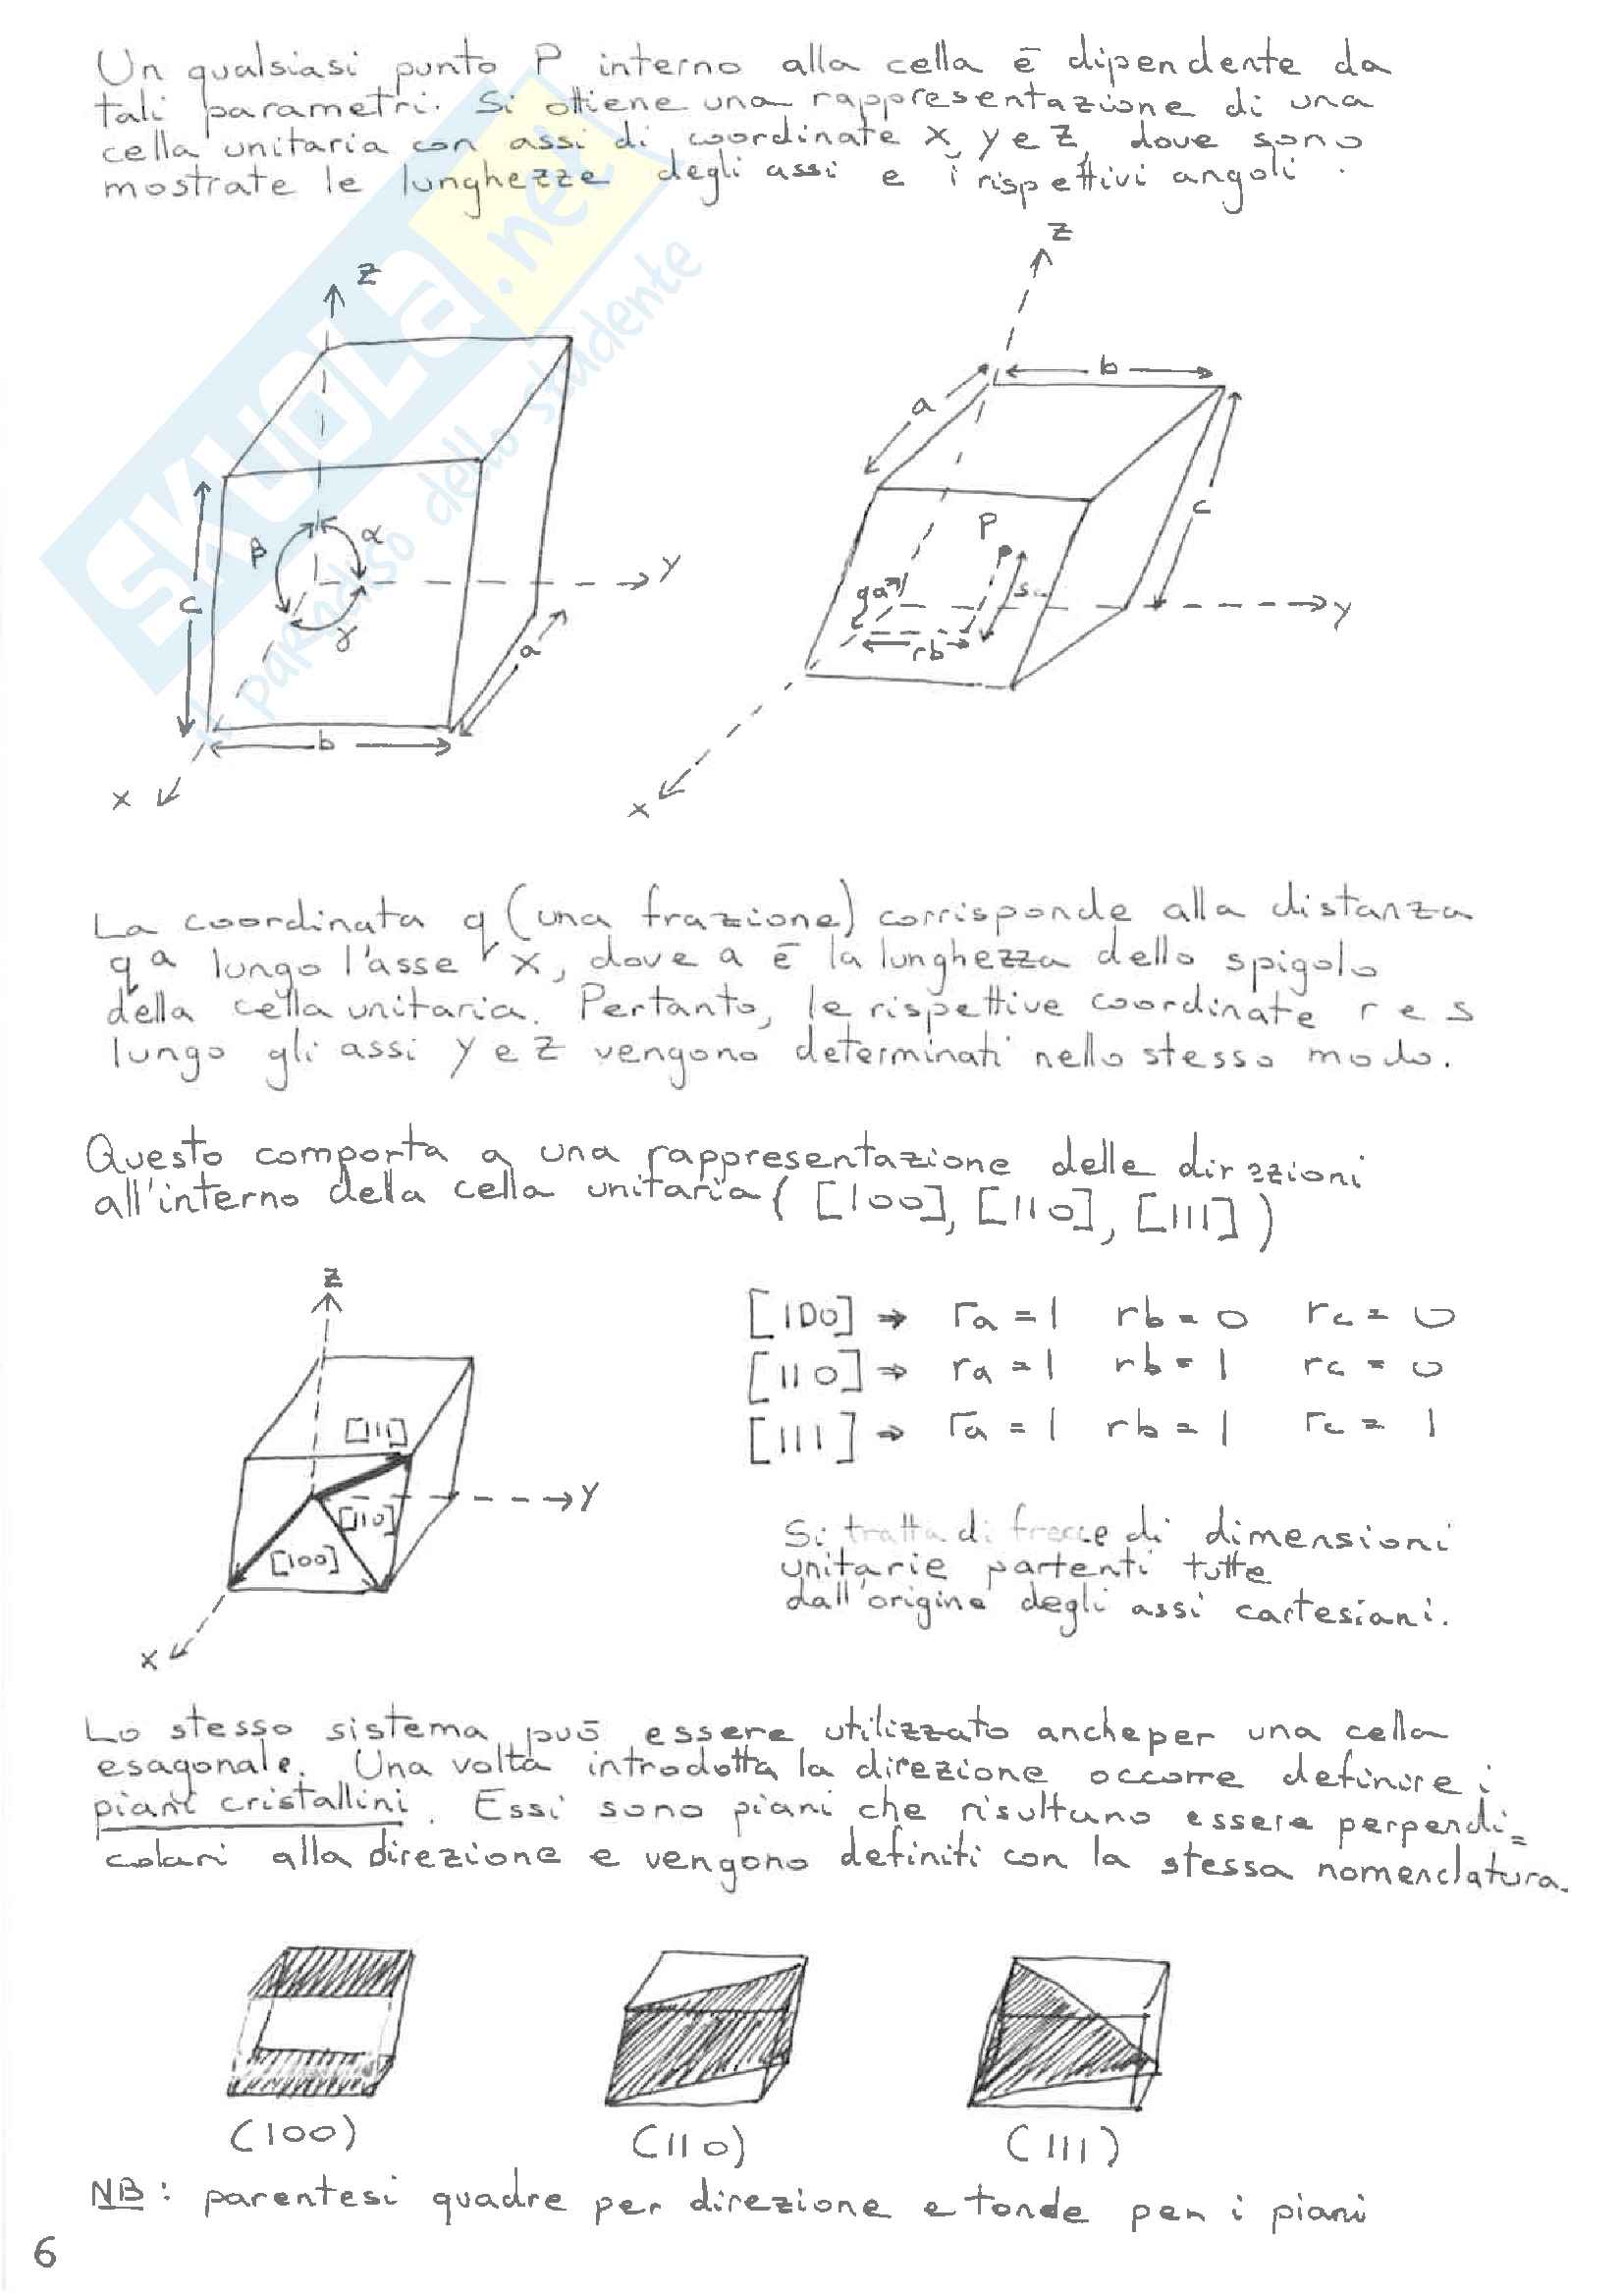 Un qualsiasi punto P interno alla cella è dipendente da
tali parametri. Si ottiene una rappresentazione di una
cella unitaria con assi di coordinate x, y e z, dove sono
mostrate le lunghezze degli assi e i rispettivi angoli.
SKUOLA.net
il paradiso dello studente
z
β
α
γ
y
c
a
b
x
z
b
a
c
P
qa
s
rb
y
x
La coordinata q (una frazione) corrisponde alla distanza
qa lungo l'asse x, dove a è la lunghezza dello spigolo
della cella unitaria. Pertanto, le rispettive coordinate r e s
lungo gli assi y e z vengono determinati nello stesso modo.
Questo comporta a una rappresentazione delle direzioni
all'interno dela cella unitaria ([100], [110], [111])
z
[111]
[110]
[100]
y
x
[100] ⇒ ra = 1 rb = 0 rc = 0
[110] ⇒ ra = 1 rb = 1 rc = 0
[111] ⇒ ra = 1 rb = 1 rc = 1
Si tratta di frecce di dimensioni
unitarie partenti tutte
dall'origine degli assi cartesiani.
Lo stesso sistema può essere utilizzato anche per una cella
esagonale. Una volta introdotta la direzione occorre definire i
piani cristallini. Essi sono piani che risultano essere perpendi=
colari alla direzione e vengono definiti con la stessa nomenclatura.
(100)
(110)
(111)
NB: parentesi quadre per direzione e tonde per i piani
6